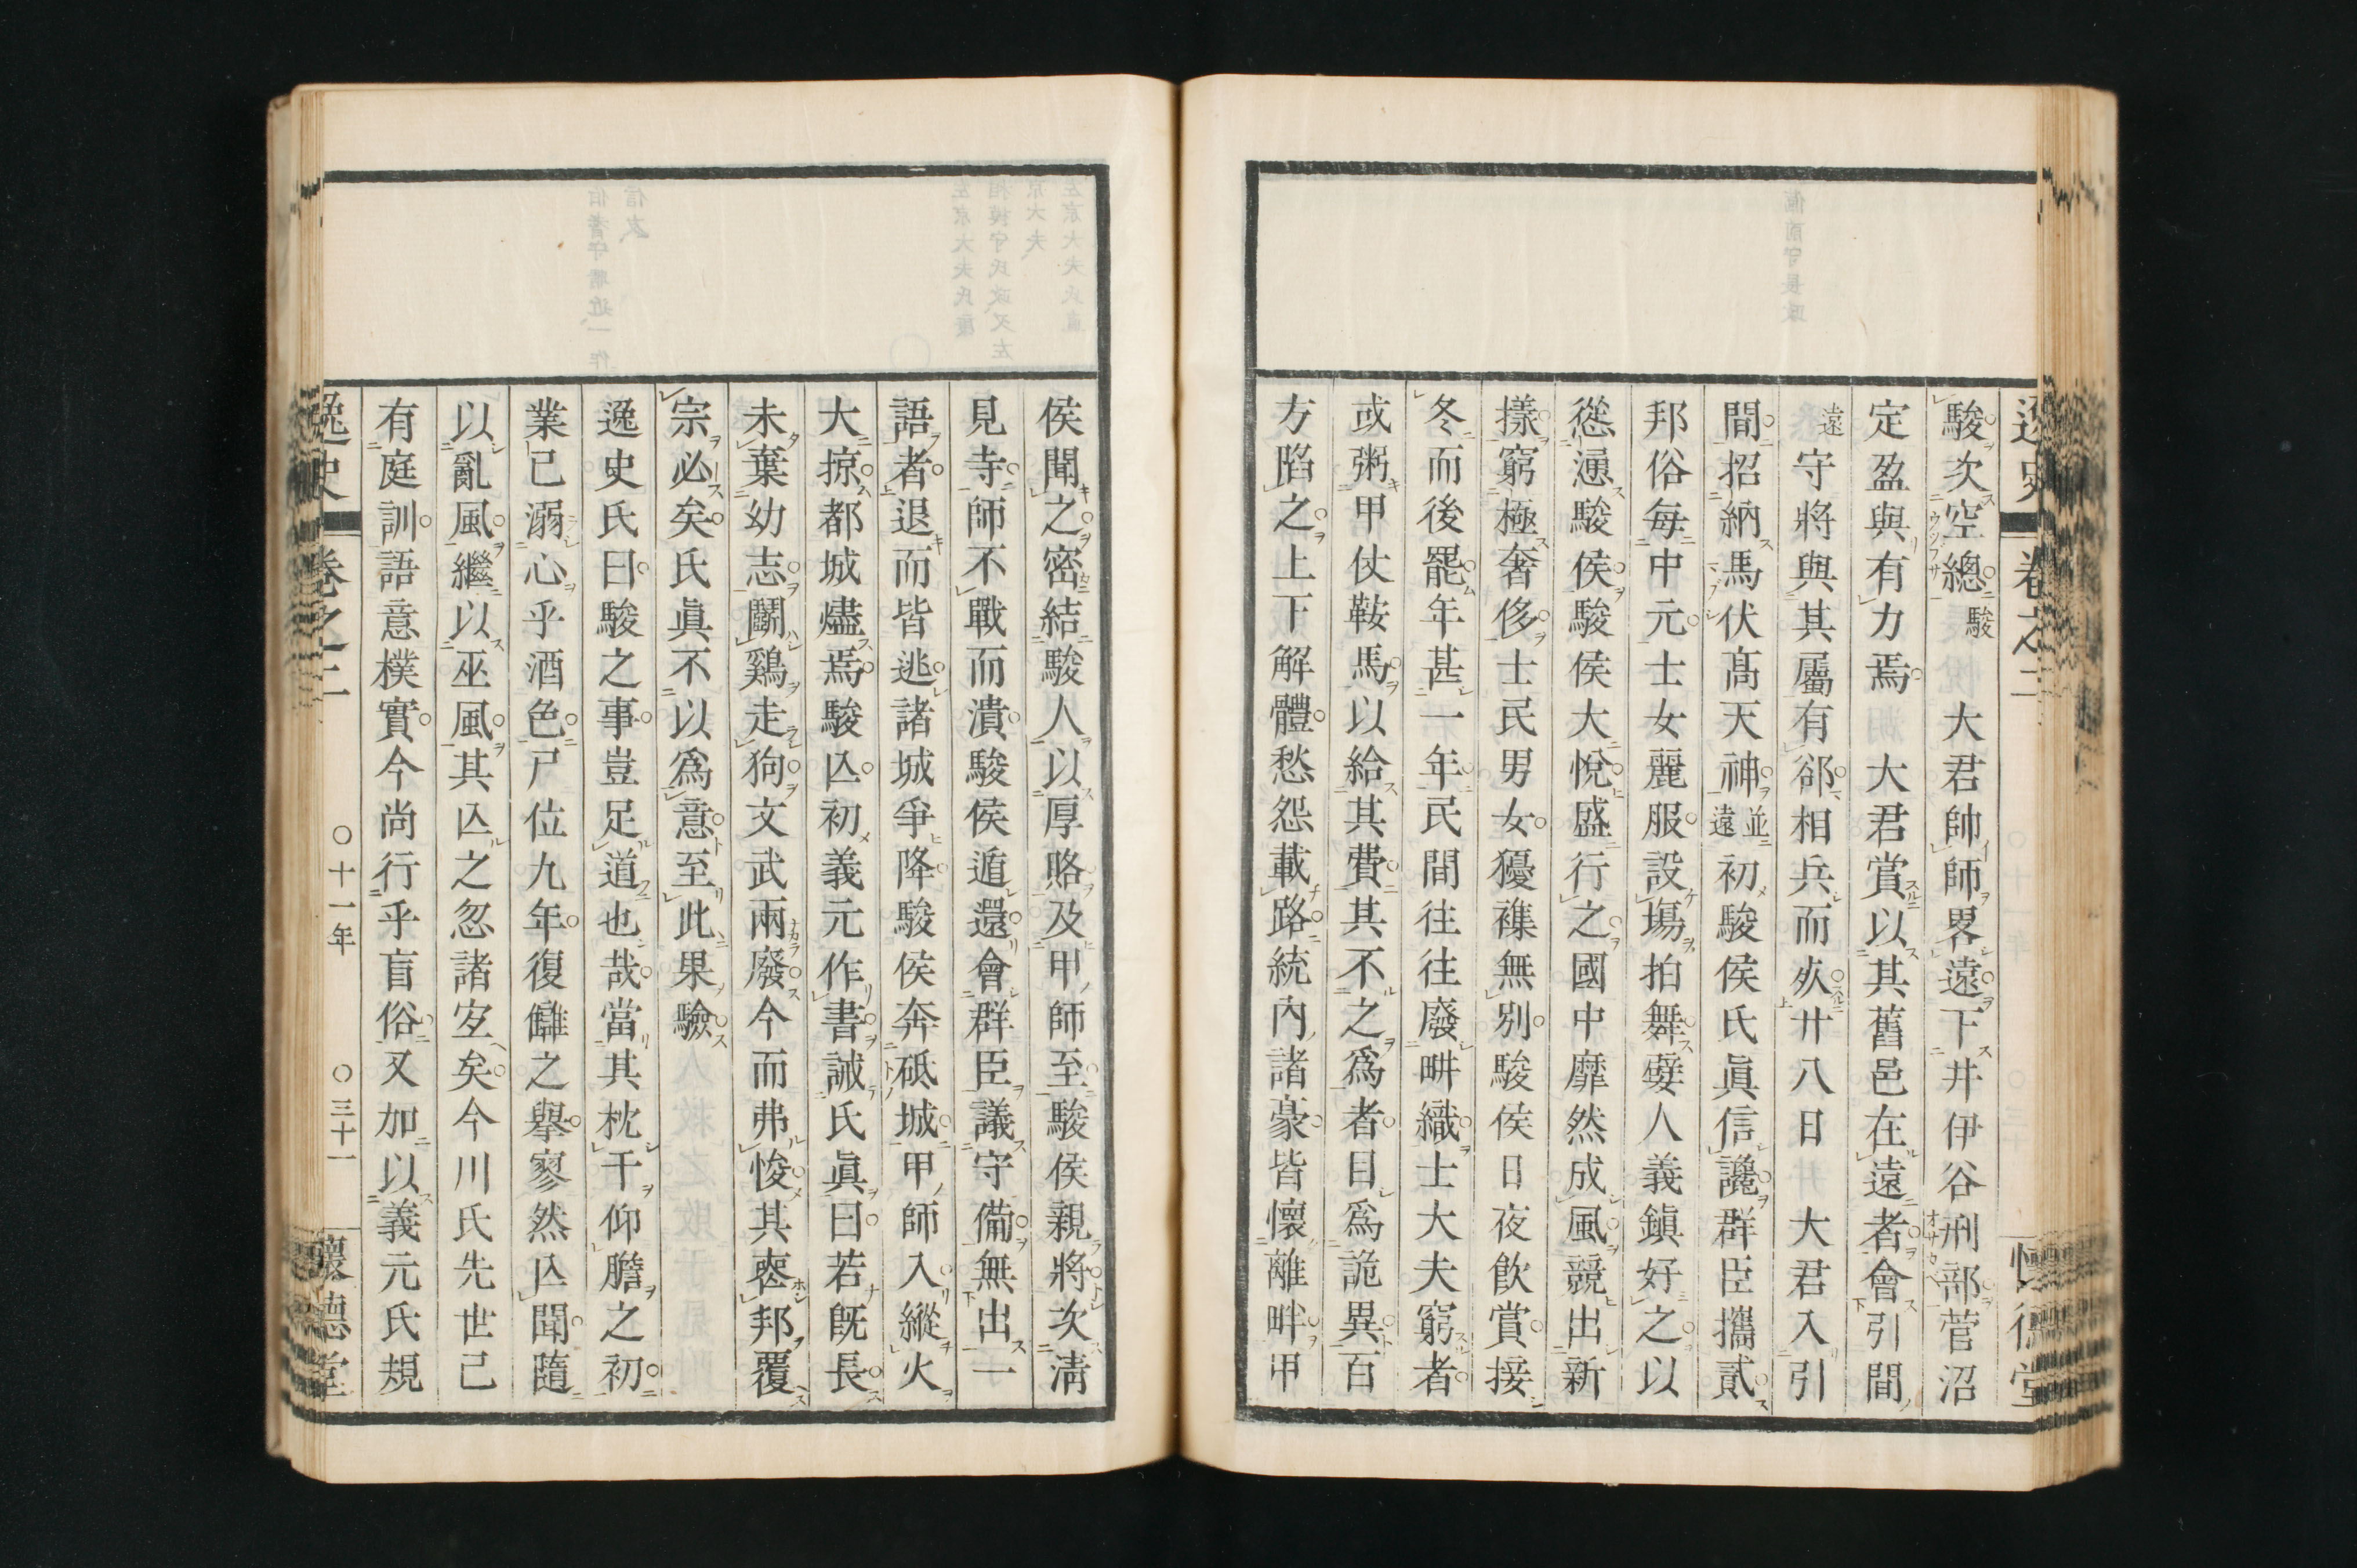 駿次空總駿大君帥師畧遠下井伊谷刑部菅沼
定盈與有力焉大君賞以其舊邑在遠者會引間
遠守將與其屬有郤相兵而烖廿八日大君入引
間招納馬伏髙天神並遠初駿侯氏眞信讒群臣攜貳
邦俗每中元士女麗服設場拍舞嬖人義鎭好之以
慫慂駿侯駿侯大悅盛行之國中靡然成風競出新
㨾窮極奢侈士民男女獶襍無別駿侯日夜飮賞接
冬而後罷年甚一年民間往往廢畊織士大夫窮者
或粥甲仗鞍馬以給其費其不之爲者目爲詭異百
方陷之上下解體愁怨載路統內諸豪皆懷離畔甲
侯聞之密結駿人以厚賂及甲師至駿侯親將次淸
見寺師不戰而潰駿侯遁還會群臣議守備無出一
語者退而皆逃諸城爭降駿侯奔砥城甲師入縱火
大掠都城燼焉駿亾初義元作書誡氏眞曰若旣長
未棄幼志鬭鷄走狗文武兩廢今而弗悛其喪邦覆
宗必矣氏眞不以爲意至此果驗
逸史氏曰駿之事豈足道也哉當其枕干仰膽之初
業已溺心乎酒色尸位九年復讎之擧寥然亾聞隨
以亂風繼以巫風其亾之忽諸宐矣今川氏先世已
有庭訓語意樸實今尚行乎盲俗又加以義元氏規
逸史 卷之二 〇十一年 〇三十一 懷德堂